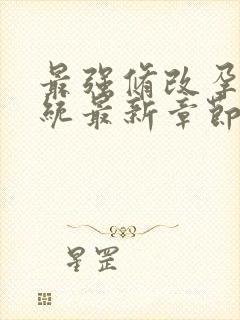 最强脩改孕
统最新章节
星罡